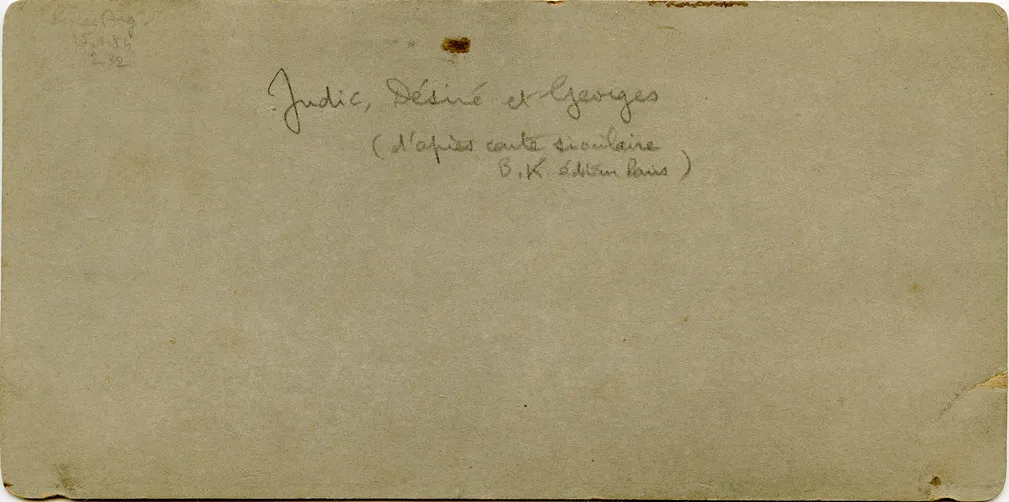 15.1.84
2.32
Judic, Désiré et Georges
(d'après carte similaire
B.K. éditeur Paris)